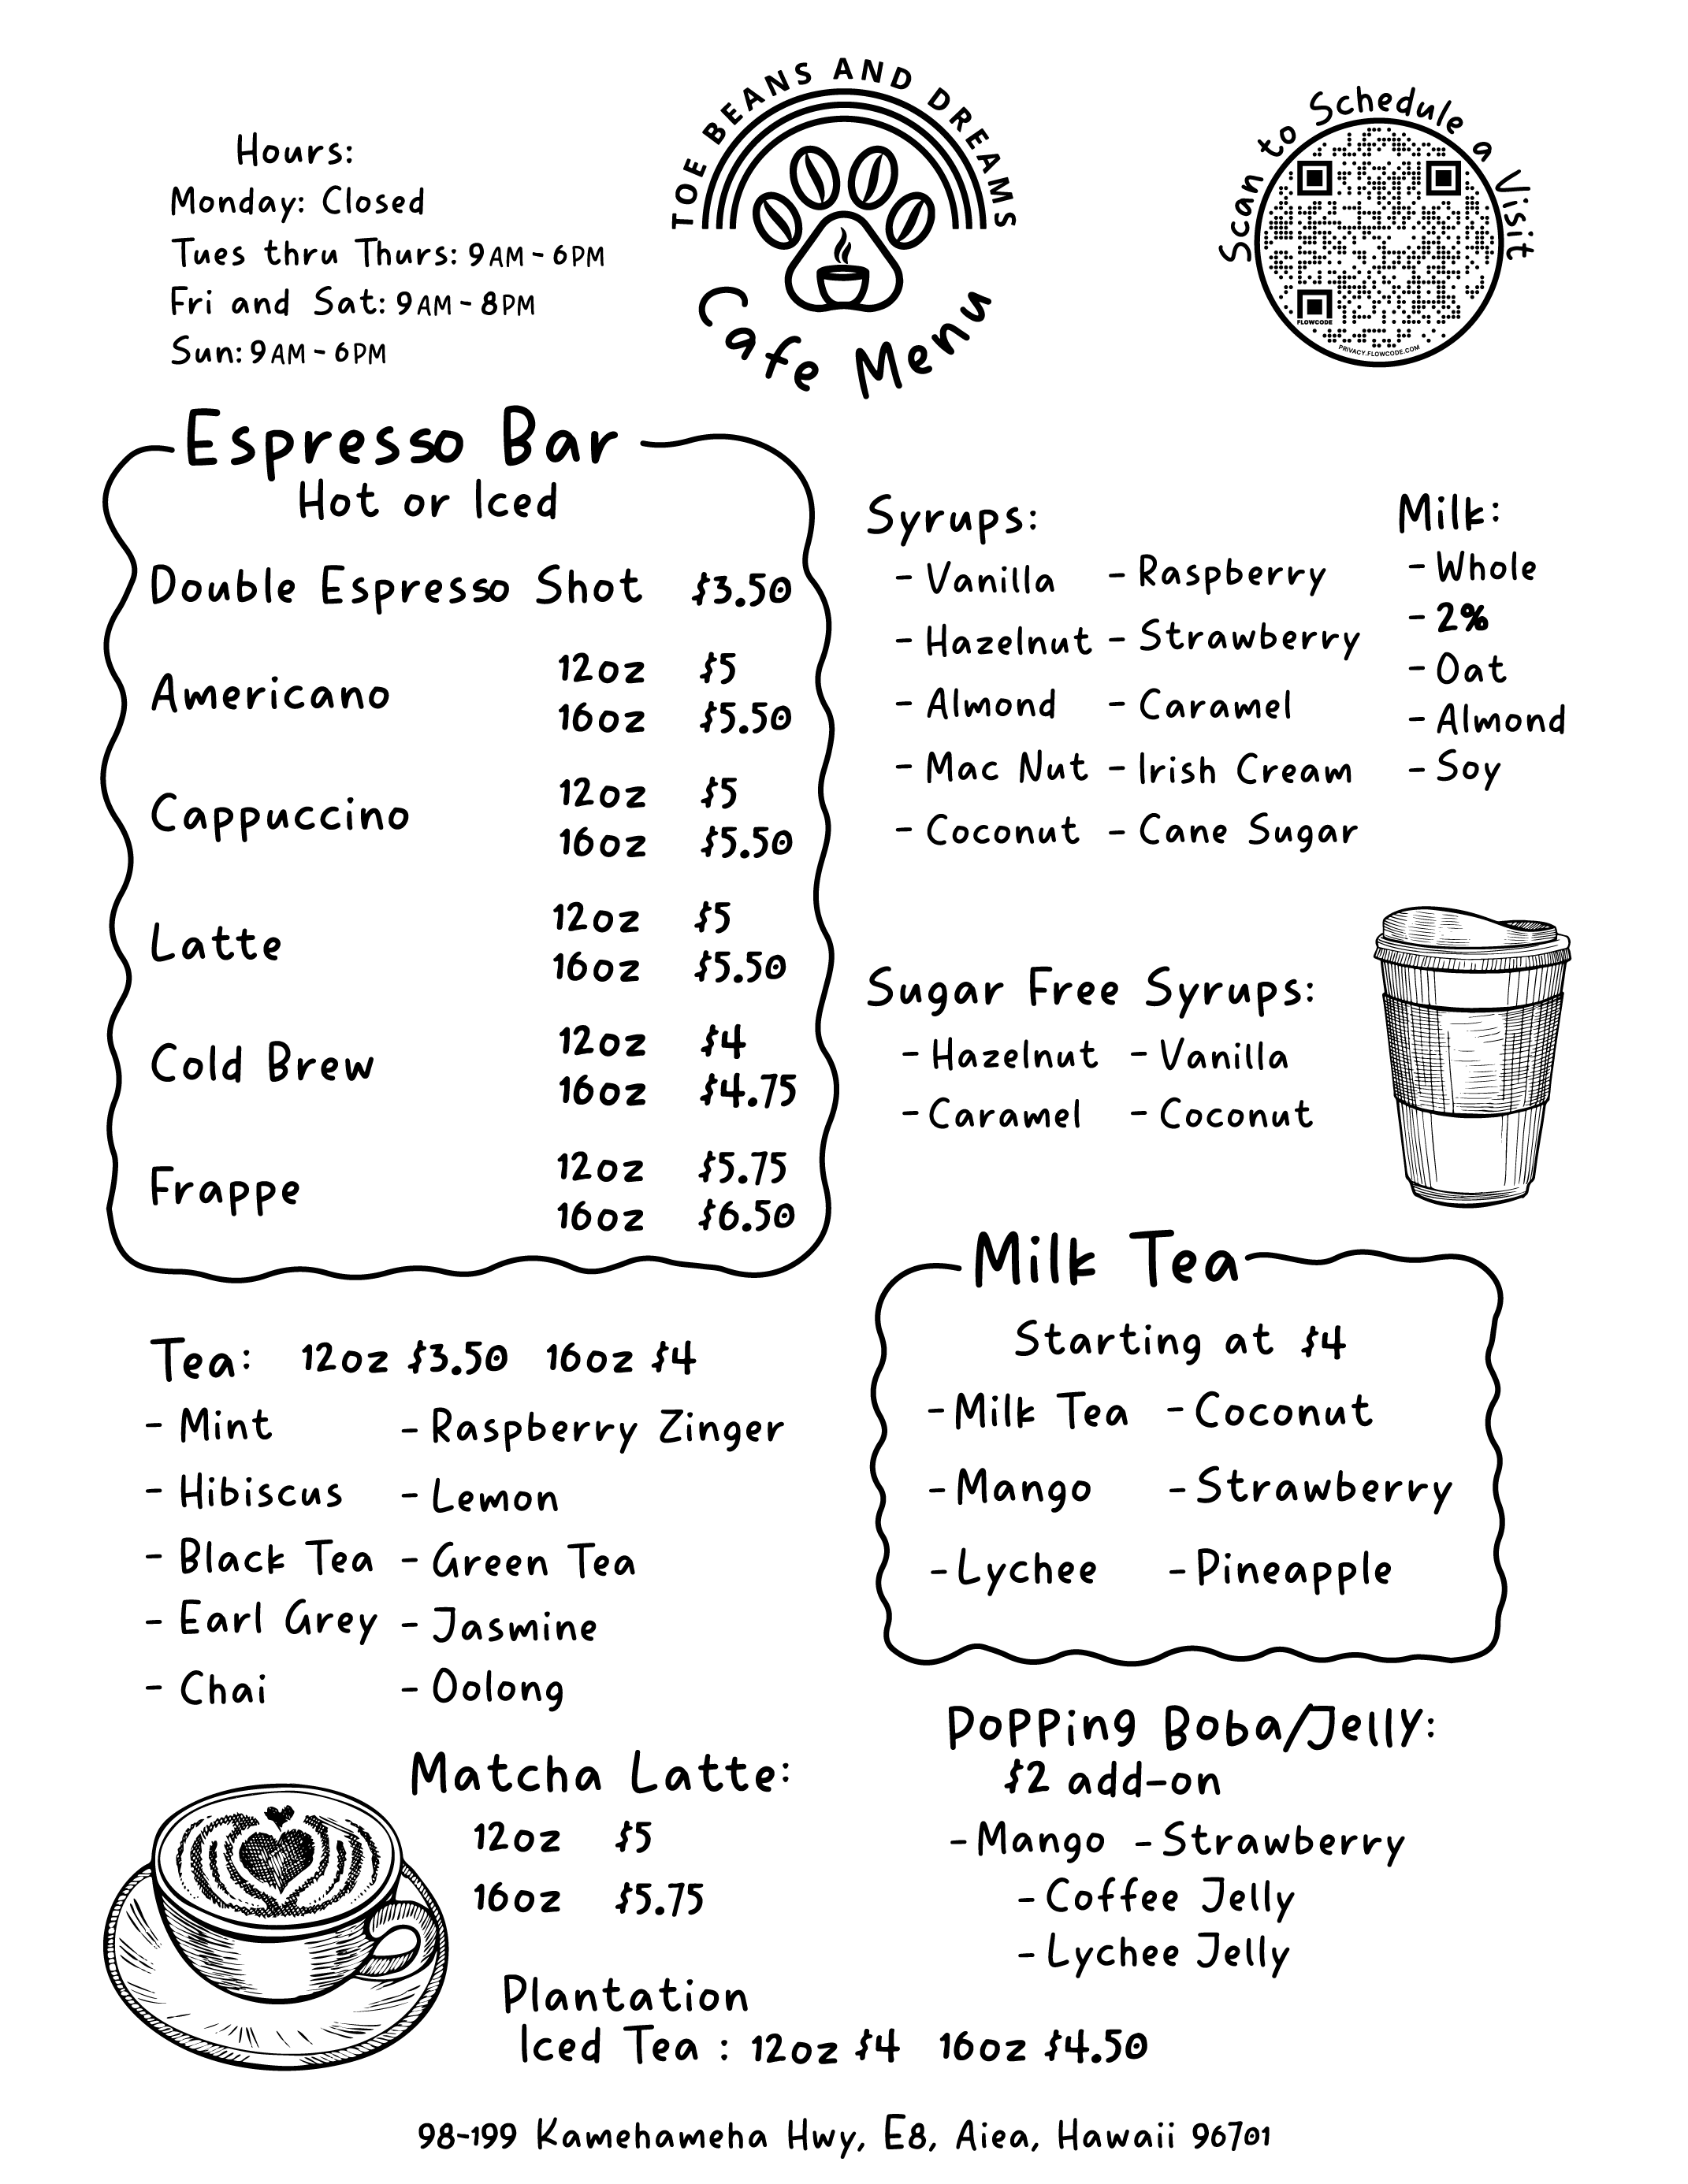 TOE BEANS AND DREAMS
Cafe Menu
Hours:
Monday: Closed
Tues thru Thurs: 9AM - 6PM
Fri and Sat: 9AM - 8PM
Sun: 9AM - 6PM
Scan to Schedule a Visit
FLOWCODE
PRIVACY.FLOWCODE.COM
Espresso Bar
Hot or Iced
Double Espresso Shot $3.50
Americano
12oz $5
16oz $5.50
Cappuccino
12oz $5
16oz $5.50
Latte
12oz $5
16oz $5.50
Cold Brew
12oz $4
16oz $4.75
Frappe
12oz $5.75
16oz $6.50
Syrups:
- Vanilla - Raspberry
- Hazelnut - Strawberry
- Almond - Caramel
- Mac Nut - Irish Cream
- Coconut - Cane Sugar
Milk:
- Whole
- 2%
- Oat
- Almond
- Soy
Sugar Free Syrups:
- Hazelnut - Vanilla
- Caramel - Coconut
Milk Tea
Starting at $4
- Milk Tea - Coconut
- Mango - Strawberry
- Lychee - Pineapple
Tea: 12oz $3.50 16oz $4
- Mint - Raspberry Zinger
- Hibiscus - Lemon
- Black Tea - Green Tea
- Earl Grey - Jasmine
- Chai - Oolong
Popping Boba/Jelly:
$2 add-on
- Mango - Strawberry
- Coffee Jelly
- Lychee Jelly
Matcha Latte:
12oz $5
16oz $5.75
Plantation
Iced Tea : 12oz $4 16oz $4.50
98-199 Kamehameha Hwy, E8, Aiea, Hawaii 96701